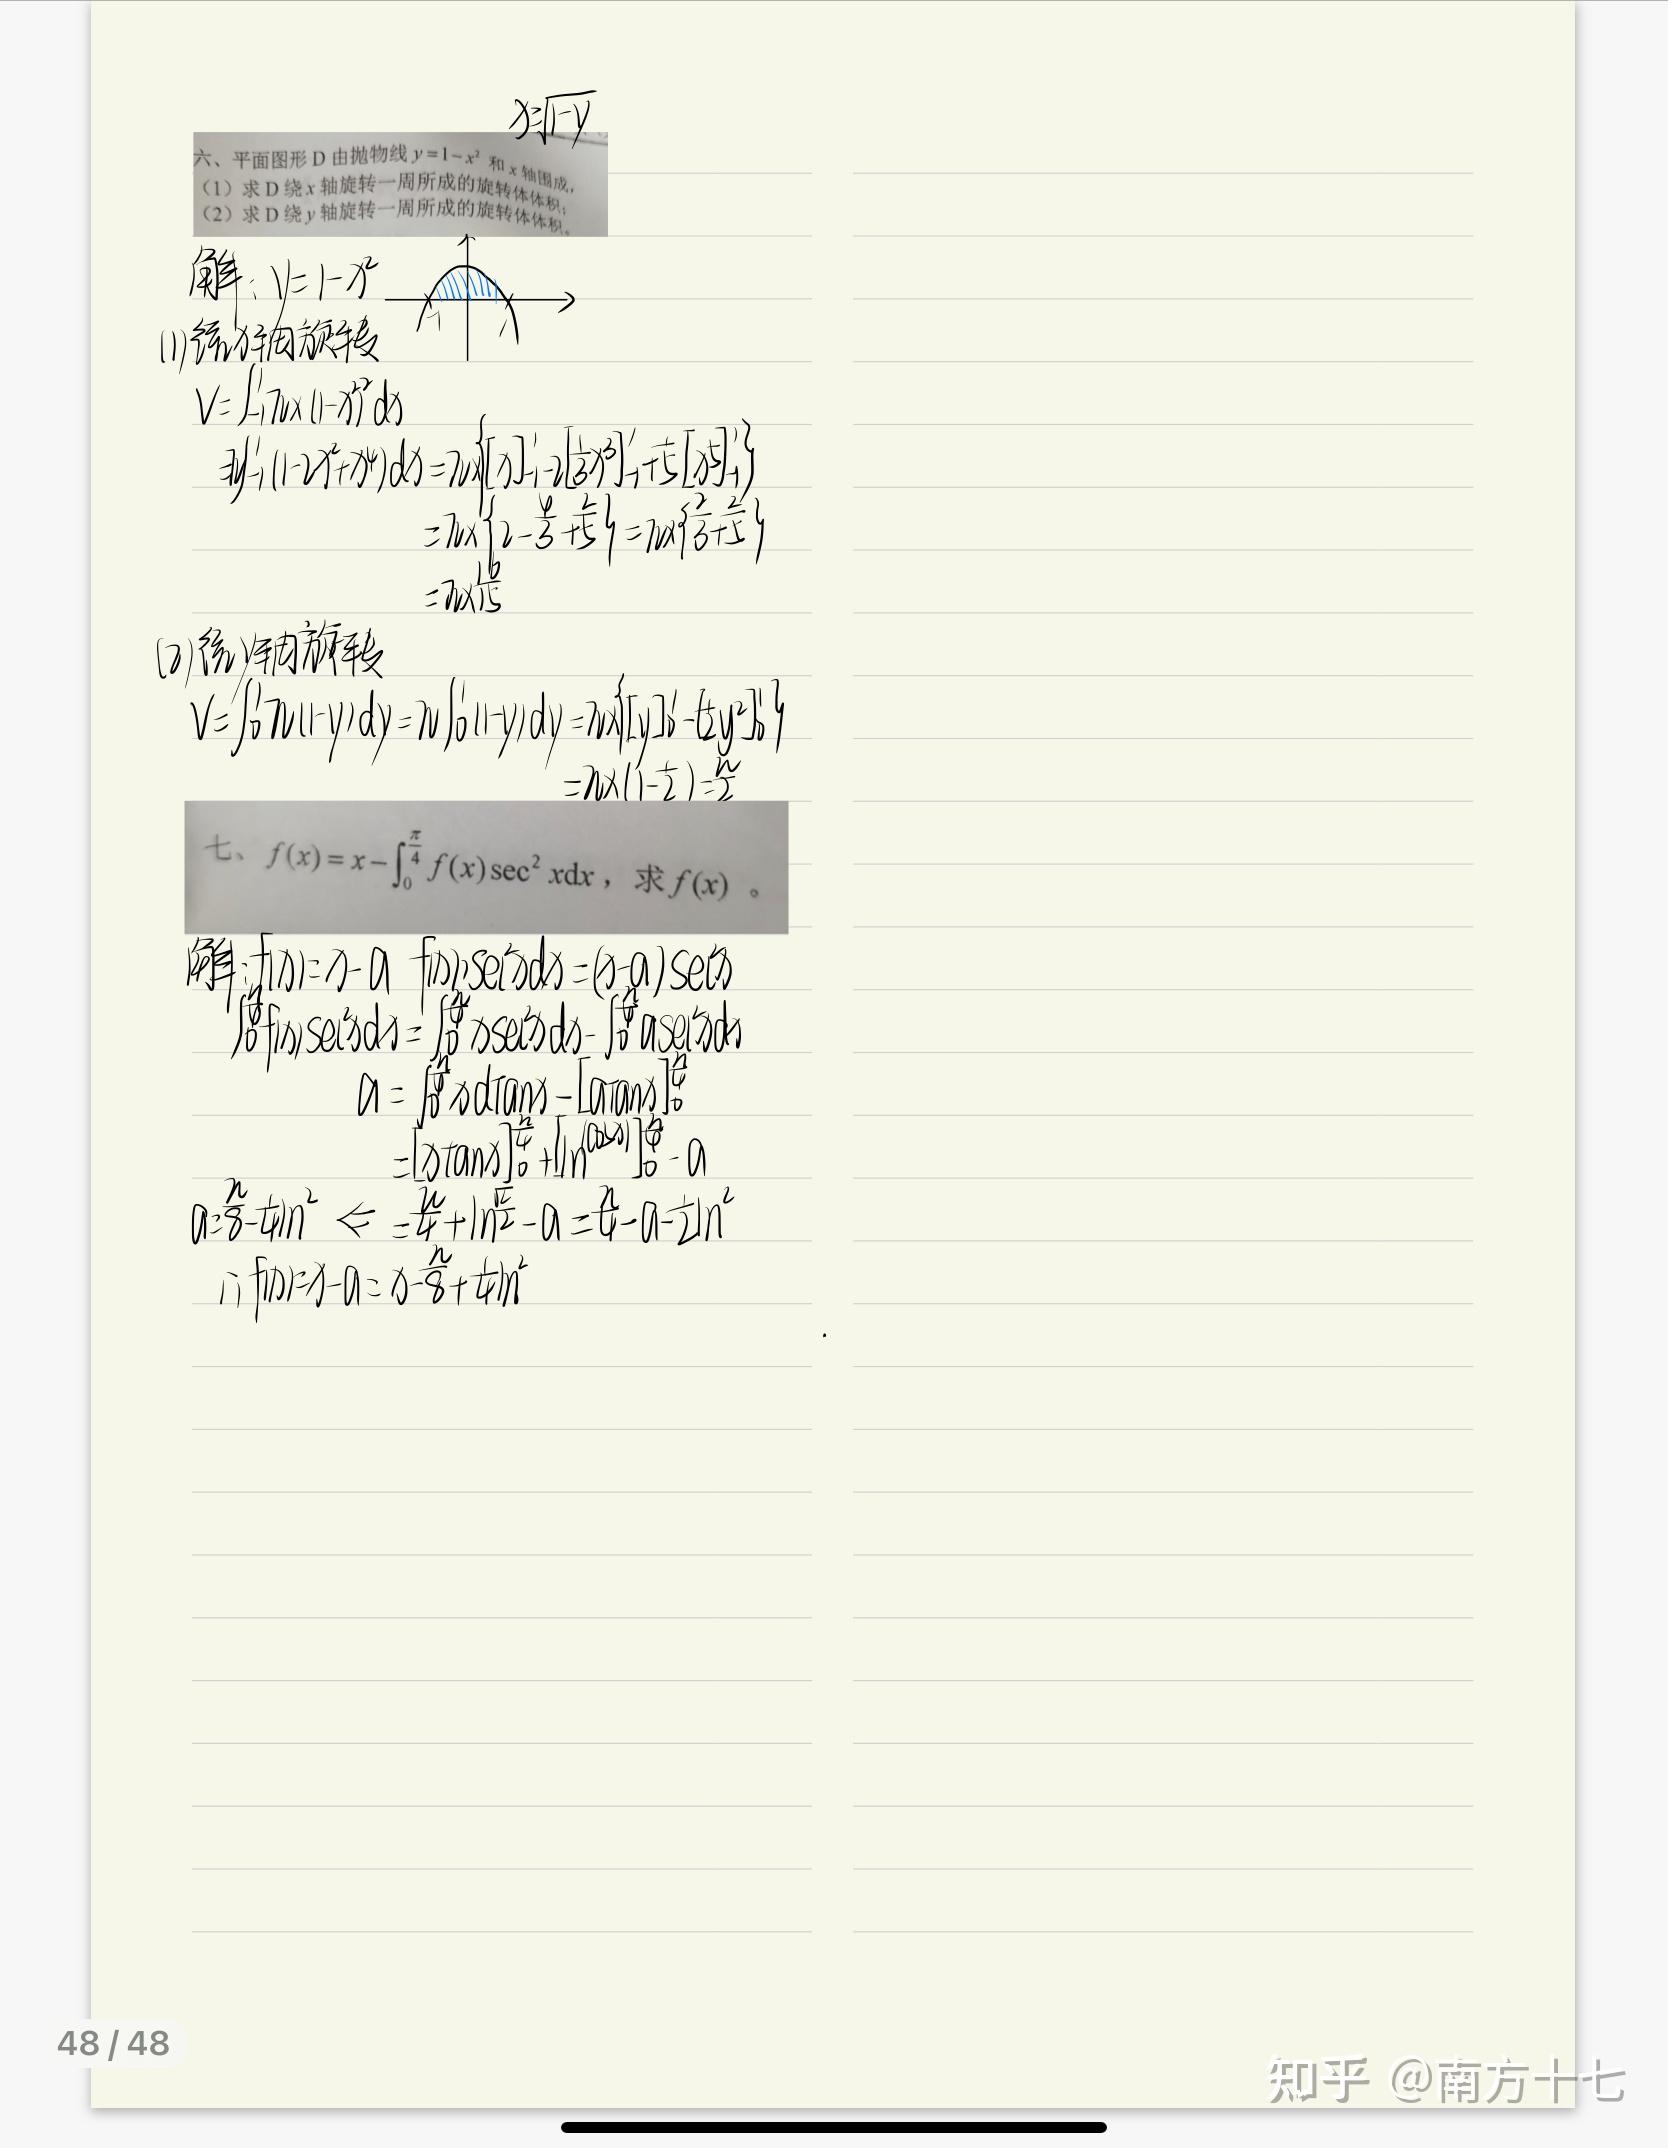 x=√(1-y)
六、平面图形 D 由抛物线 y=1-x² 和 x 轴围成,
（1）求 D 绕 x 轴旋转一周所成的旋转体体积;
（2）求 D 绕 y 轴旋转一周所成的旋转体体积。
解: y=1-x²
-1 1
(1) 绕x轴旋转
V=∫₋₁¹π×(1-x²)²dx
=π∫₋₁¹(1-2x²+x⁴)dx=π×{[x]₋₁¹-2[1/3x³]₋₁¹+1/5[x⁵]₋₁¹}
=π×{2-4/3+2/5}=π×{2/3+2/5}
=π×16/15
(2) 绕y轴旋转
V=∫₀¹π(1-y)dy=π∫₀¹(1-y)dy=π×{[y]₀¹-[1/2y²]₀¹}
=π×(1-1/2)=π/2
七、f(x)=x-∫₀^(π/4) f(x)sec² xdx，求 f(x) 。
解: f(x)=x-a f(x)·sec²xdx=(x-a)sec²x
∫₀^(π/4)f(x)sec²xdx=∫₀^(π/4)xsec²xdx-∫₀^(π/4)asec²xdx
a=∫₀^(π/4)xdtanx-[atanx]₀^(π/4)
=[xtanx]₀^(π/4)+[ln(cosx)]₀^(π/4)-a
a=π/8-1/4ln2 ⇐ =π/4+ln√2/2-a=π/4-a-1/2ln2
∴f(x)=x-a=x-π/8+1/4ln2
48 / 48
知乎 @南方十七